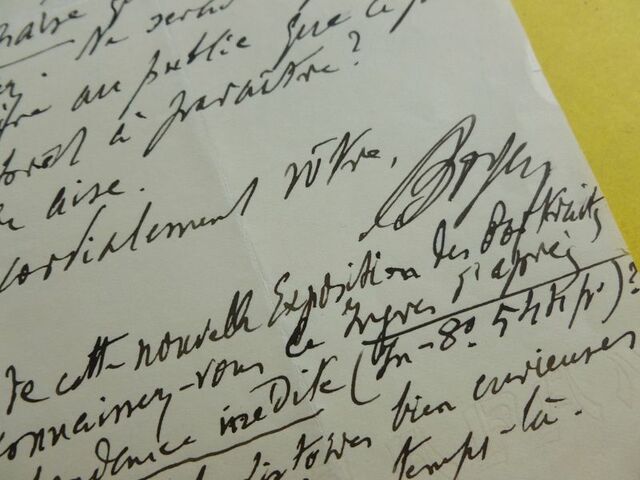 Ne serait
au public que ce
à paraître?
aise.
cordialement vôtre,
cette nouvelle Exposition des Portraits
connaissez-vous ce Ingres d'après
inédite (In-8º. 544 p.)?
histoires bien curieuses
temps-là.